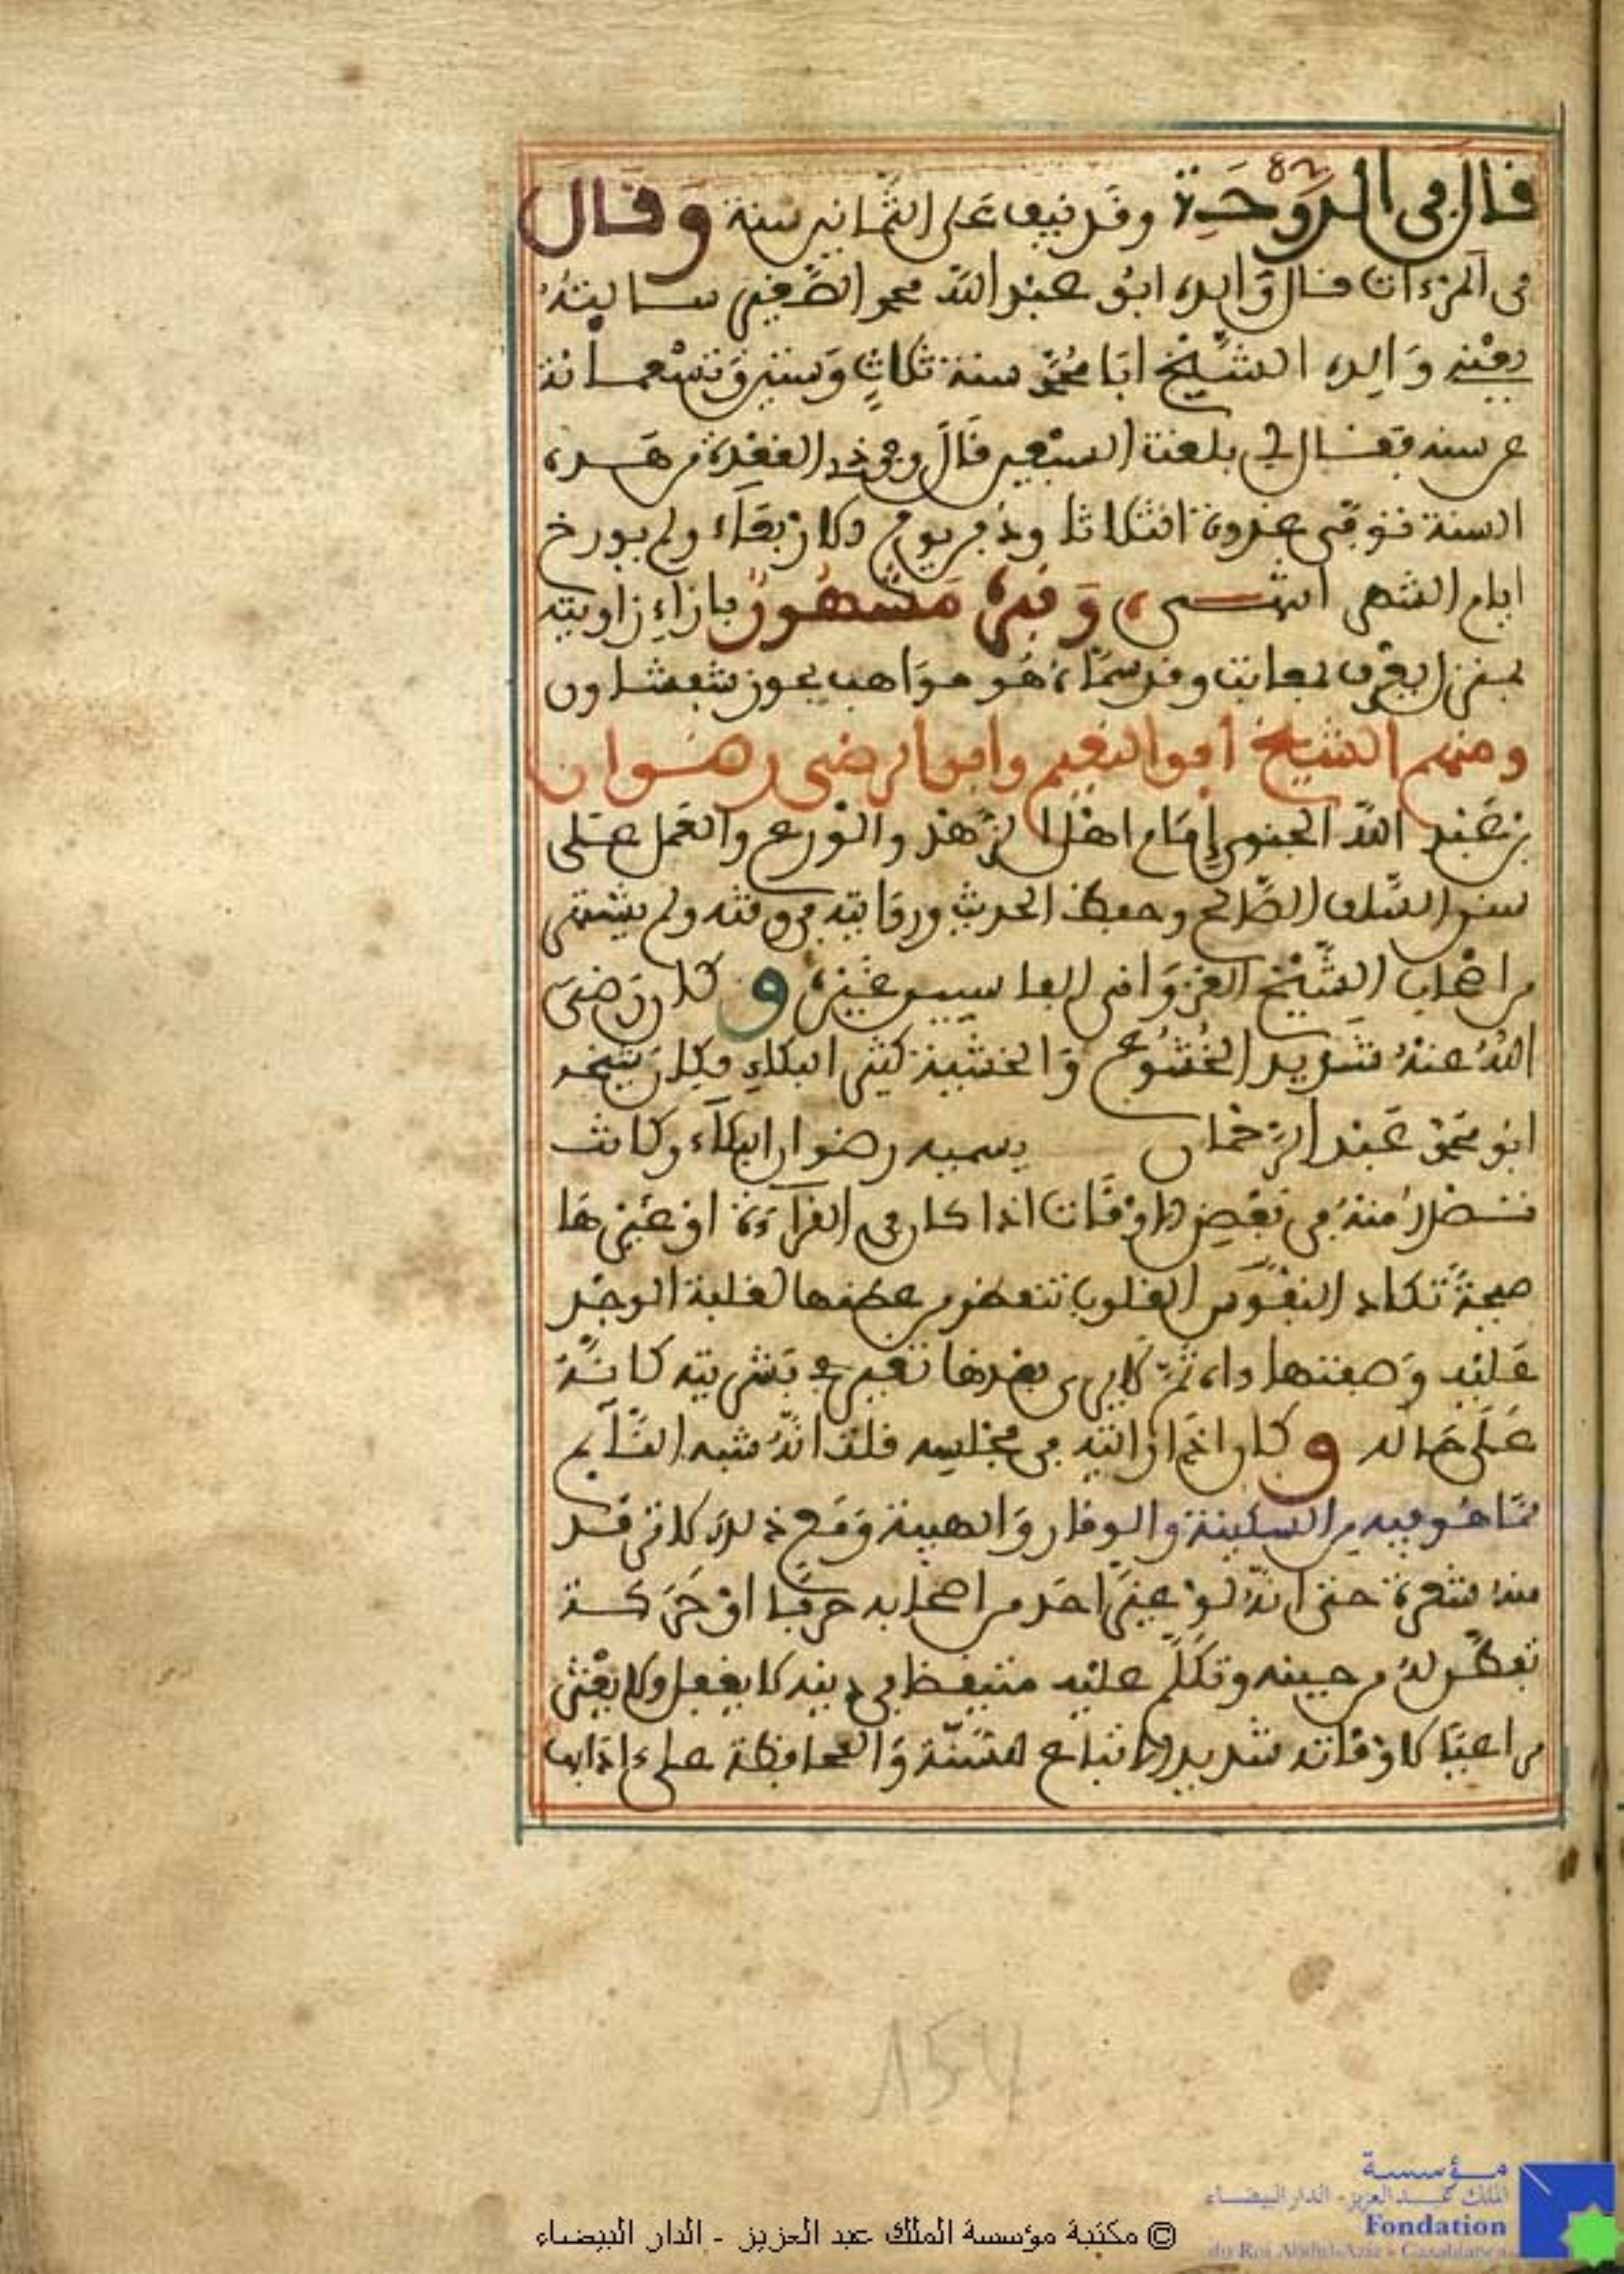 قال في الدوحة وقد نيف على الثمانين سنة وقال
في المرءات قال ولده ابو عبد الله محمد الصغير سالته
يعني والده الشيخ ابا محمد سنة ثلاث وستين وتسعمائة
عن سنه فقال لي بلغت السبعين قال وفي ذي القعدة من هذه
السنة توفي غدوة الثلاثا ودفن يوم الاربعاء ولم يورخ
ايام الشهر انتهى وقبره مشهور بازاء زاويته
ومنهم الشيخ أبو النعيم وابو الرضى رضوان
بن عبد الله الجنوي إمام اهل الزهد والورع والعمل على
سنن السلف الصالح وحفظ الحديث وروايته في وقته ولم يشتهر
من اصحاب الشيخ الغزواني الفاسيين غيره وكان رضي
الله عنه شديد الخشوع والخشية كثير البكاء وكان شيخه
ابو محمد عبد الرحمان يسميه رضوان البكاء وكانت
تصدر منه في بعض الاوقات اذا كان في القراءة او غيرها
صيحة تكاد النفوس القلوب تنفطر من عظمها لغلبة الوجد
عليه وصفتها داه ثم لا يرى بعدها تغير في بشريته كانه
على حاله وكان اذا رايته في مجلسه قلت انه شبه النايم
مما هو فيه من السكينة والوقار والهيبة ومع ذلك لا تتحرك
منه شعرة حتى انه لو غير احد من اصحابه حرفا او حركة
تفطن له من حينه وتكلم عليه متيقظا في دينه لا يغفل ولا يفتر
مراعيا لاوقاته شديد الاتباع للسنة والمحافظة على ءاداب
154
مؤسسة
الملك عبد العزيز - الدار البيضاء
Fondation
du Roi Abdul-Aziz - Casablanca
© مكتبة مؤسسة الملك عبد العزيز - الدار البيضاء